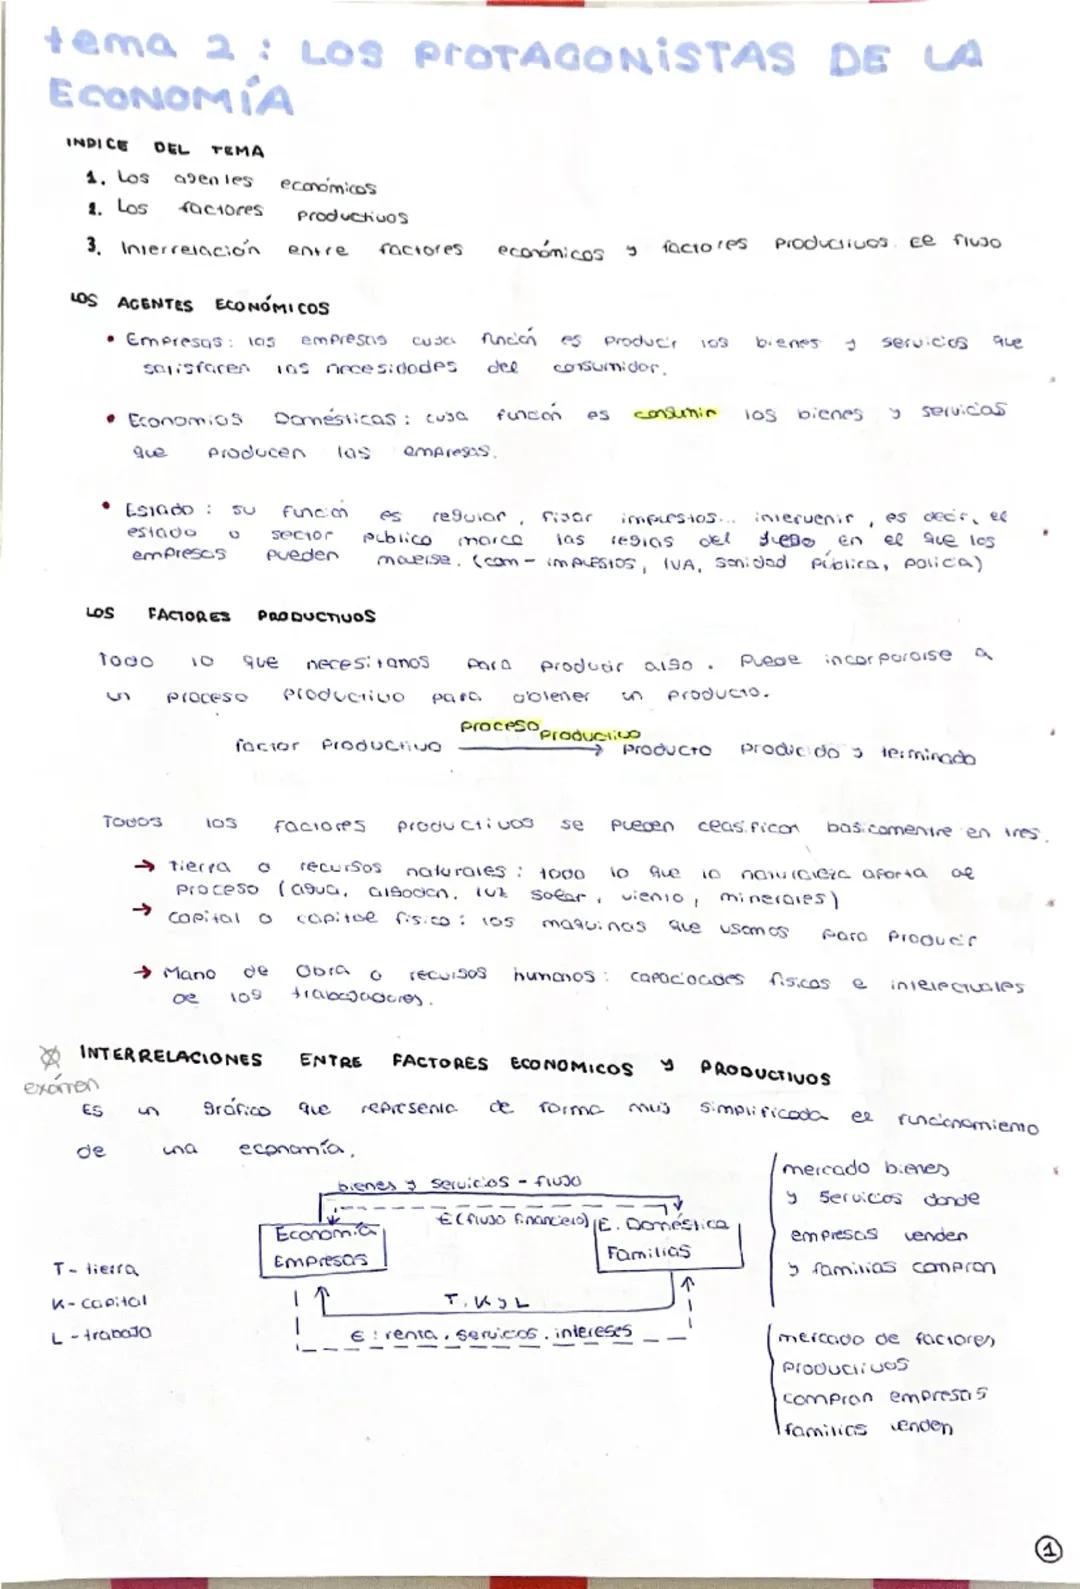 tema 2: LOS PROTAGONISTAS DE LA
ECONOMÍA
INDICE DEL TEMA
1. Los agentes económicos
2. Los factores productivos
3. Interrelación entre factores económicos y factores productivos. el flujo
LOS AGENTES ECONÓMICOS
• Empresas: las empresas cuya función es producir los bienes y servicios que
satisfacen las necesidades del consumidor.
• Economias Domésticas: cuya función es consumir los bienes y servicios
que producen las empresas.
• Estado: su función es regular, fijar impuestos... intervenir, es decir, el
estado o sector público marca las reglas del juego en el que las
empresas pueden moverse. (com- impuestos, IVA, sanidad pública, policia)
LOS FACTORES PRODUCTIVOS
Todo lo que necesitamos para producir algo. Puede incorporarse a
un proceso productivo para obtener un producto.
proceso productivo
factor productivo → producto producido y terminado
Todos los factores productivos se pueden clasifican basicamente en tres.
→ Tierra o recursos naturales: todo lo que la naturaleza aporta al
proceso (agua, algodon, luz solar, viento, minerales)
→ capital o capital fisico: las maquinas que usamos para producir
→ Mano de Obra o recursos humanos: capacidades fisicas e intelectuales
de los trabajadores.
INTERRELACIONES ENTRE FACTORES ECONOMICOS y PRODUCTIVOS
exámen
Es un gráfico que representa de forma muy simplificada el funcionamiento
de una economía.
bienes y servicios - flujo
€ (flujo financiero)
Economía
Empresas
E. Doméstica
Familias
T, K y L
€: renta, servicos, intereses
T- tierra
K- capital
L- trabajo
mercado bienes
y servicios donde
empresas venden
y familias compran
mercado de factores
productivos
compran empresas
familias venden
1